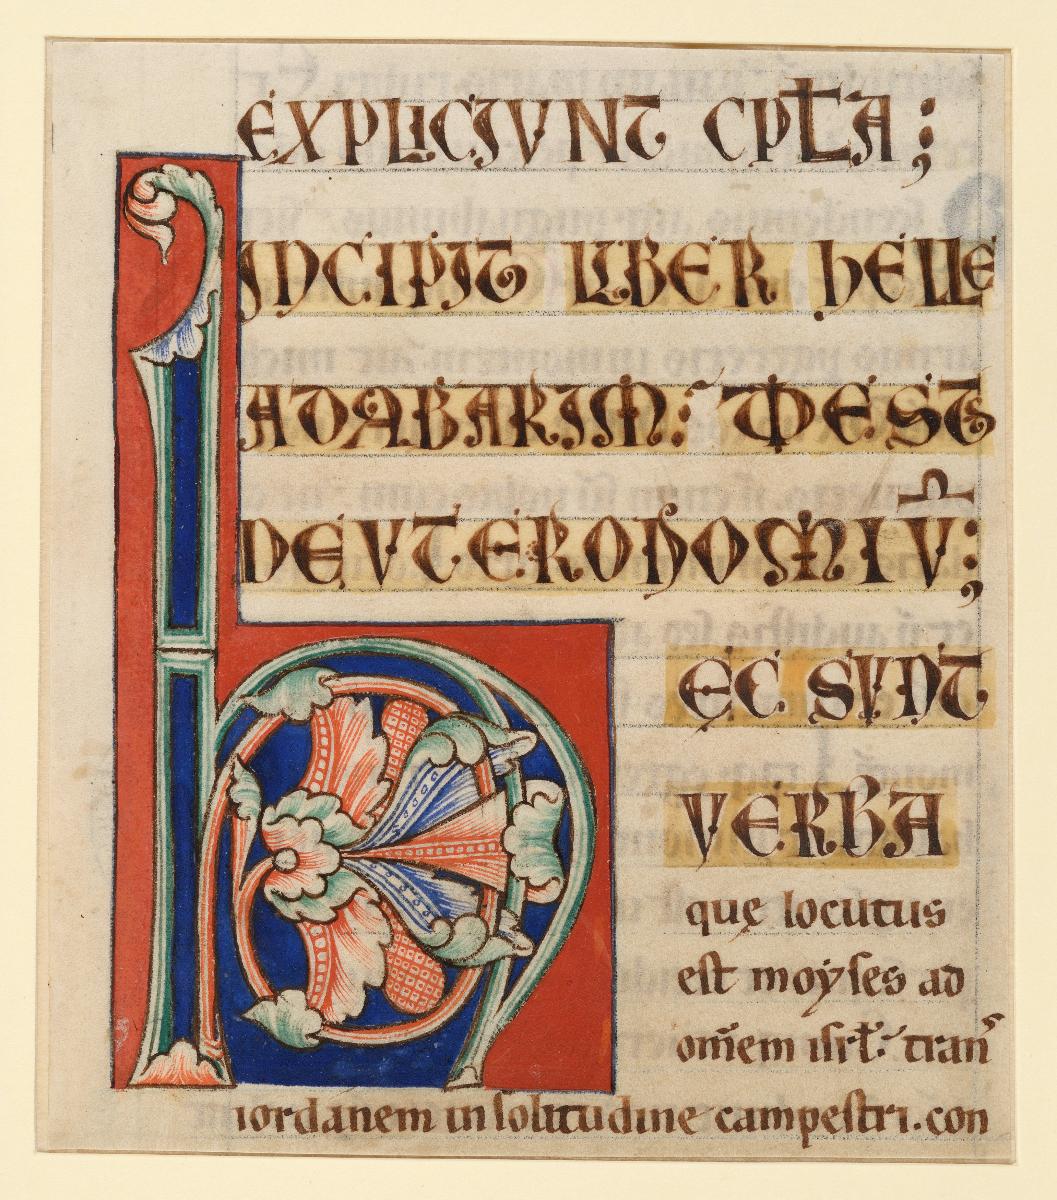 EXPLICIUNT CPLA;
INCIPIT LIBER HELLE
ADABARIM: ID EST
DEUTERONOMIU;
HEC SUNT
VERBA
quę locutus
est moyses ad
om̄em isrł. tran̄
iordanem in solitudine campestri. con